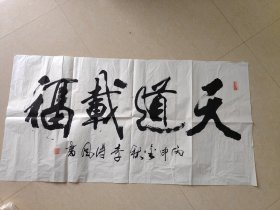 天道載福
丙申金秋李
書